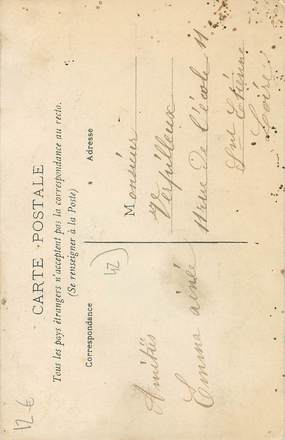 CARTE POSTALE
Tous les pays étrangers n'acceptent pas la correspondance au recto.
(Se renseigner à la Poste)
Correspondance
Adresse
Amitiés
Emma aînée
Monsieur
Verpilleux
11 rue de l'école 11
St Etienne
Loire
12 €